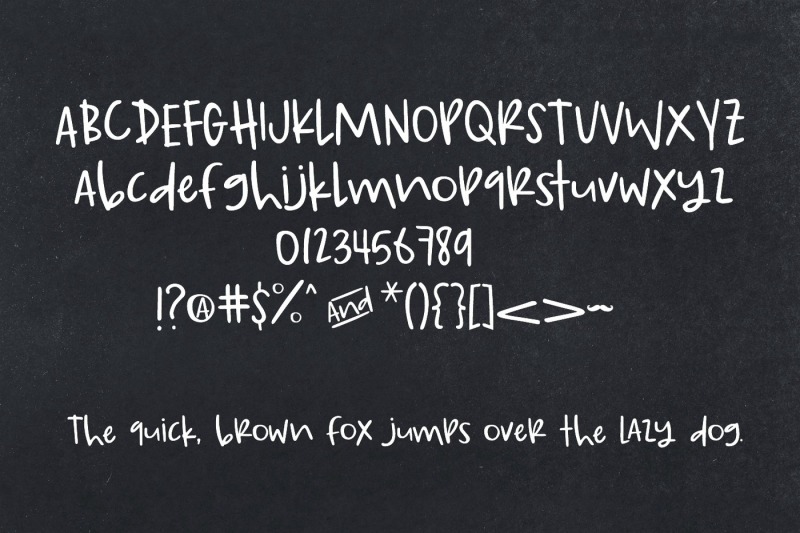 ABCDEFGHIJKLMNOPQRSTUVWXYZ
Abcdefghijklmnopqrstuvwxyz
0123456789
!?@#$%^ And *(){}[]<>~
The quick, brown fox jumps over the lazy dog.